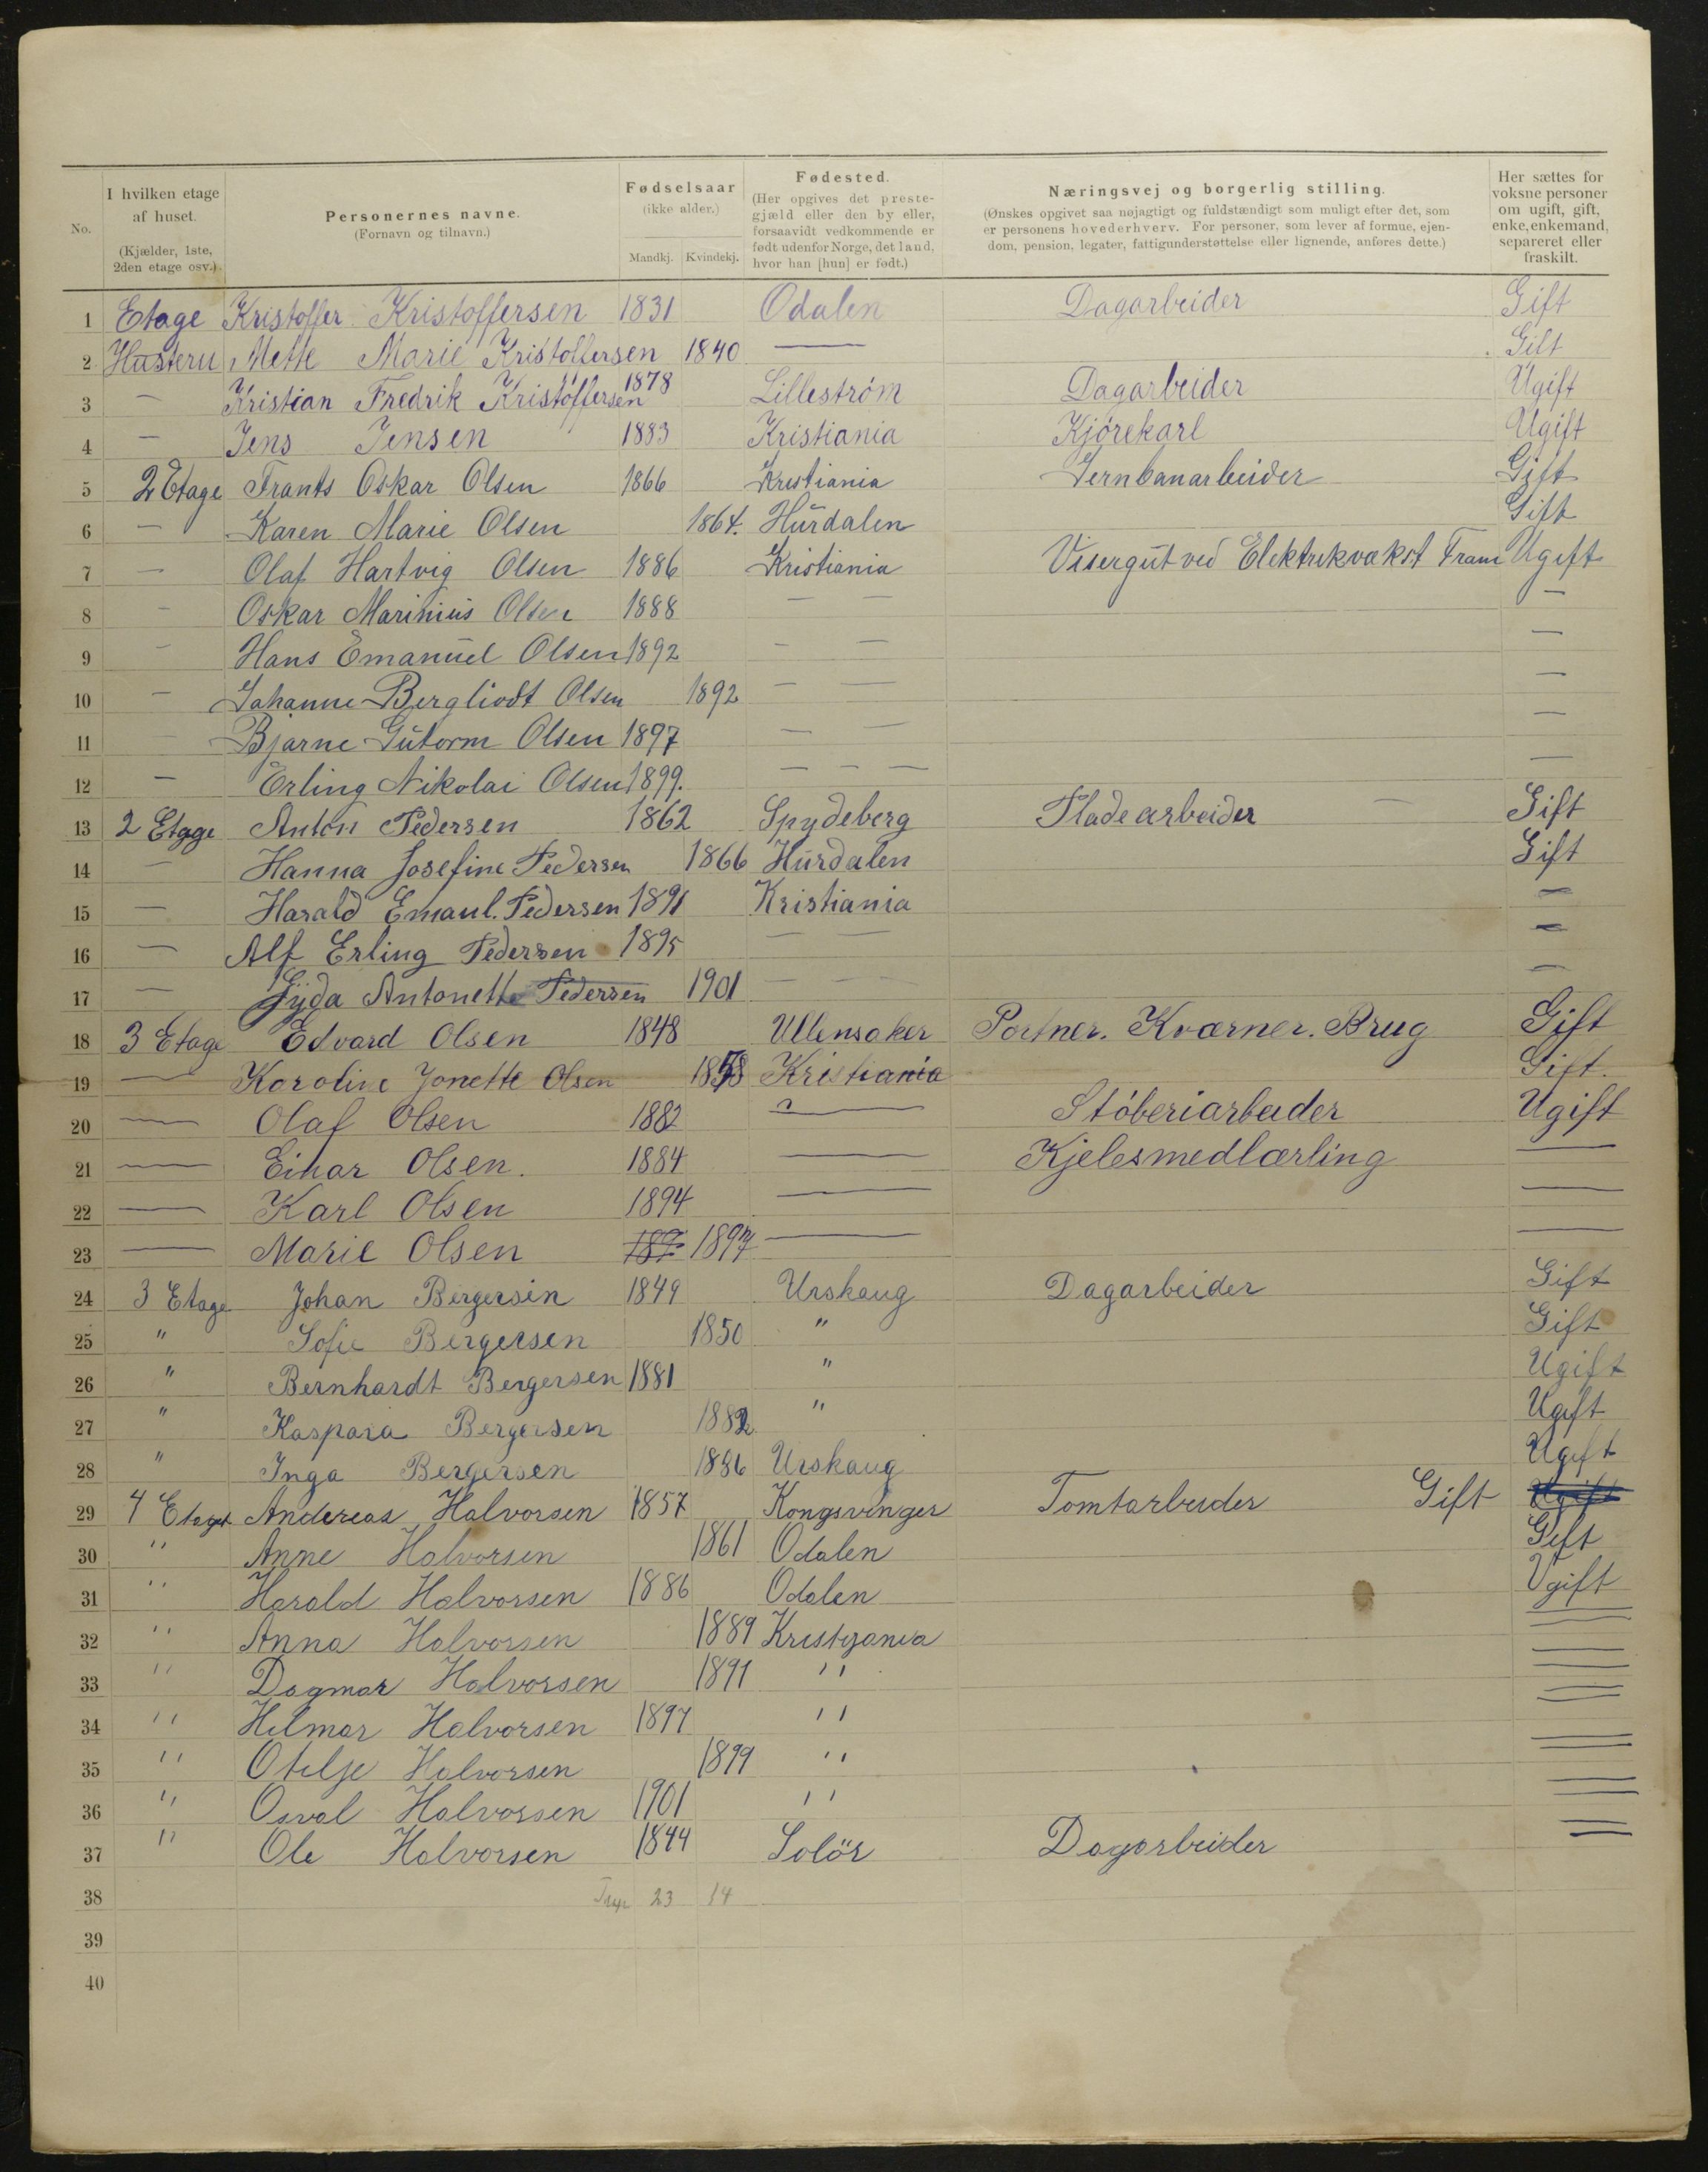 No. | I hvilken etage af huset. (Kjælder, 1ste, 2den etage osv.) | Personernes navne. (Fornavn og tilnavn.) | Fødselsaar (ikke alder.) Mandkj. Kvindekj. | Fødested. (Her opgives det prestegjæld eller den by eller, forsaavidt vedkommende er født udenfor Norge, det land, hvor han [hun] er født.) | Næringsvej og borgerlig stilling. (Ønskes opgivet saa nøjagtigt og fuldstændigt som muligt efter det, som er personens hovederhverv. For personer, som lever af formue, ejendom, pension, legater, fattigunderstøttelse eller lignende, anføres dette.) | Her sættes for voksne personer om ugift, gift, enke, enkemand, separeret eller fraskilt.
1 Etage Kristoffer Kristoffersen 1831 Odalen Dagarbeider Gift
2 Hustru Mette Marie Kristoffersen 1840 — Gift
3 — Kristian Fredrik Kristoffersen 1878 Lillestrøm Dagarbeider Ugift
4 — Jens Jensen 1883 Kristiania Kjørekarl Ugift
5 2 Etage Frants Oskar Olsen 1866 Kristiania Jernbanarbeider Gift
6 — Karen Marie Olsen 1864. Hurdalen Gift
7 — Olaf Hartvig Olsen 1886 Kristiania Visergut ved Elektrikvækst Fram Ugift
8 — Oskar Marinius Olsen 1888 — — —
9 — Hans Emanuel Olsen 1892 — — —
10 — Johanne Bergliodt Olsen 1892 — — —
11 — Bjarne Gutorm Olsen 1897 — — —
12 — Erling Nikolai Olsen 1899. — — — —
13 2 Etage Anton Pedersen 1862 Spydeberg Pladearbeider — Gift
14 — Hanna Josefine Pedersen 1866 Hurdalen Gift
15 — Harald Emaul. Pedersen 1891 Kristiania —
16 — Alf Erling Pedersen 1895 — — —
17 — Lyda Antonette Pedersen 1901 — — —
18 3 Etage Edvard Olsen 1848 Ullensaker Portner. Kværner. Brug Gift
19 — Karoline Jonette Olsen 1858 Kristiania Gift.
20 — Olaf Olsen 1882 — Støberiarbeider Ugift
21 — Einar Olsen. 1884 — Kjelesmedlærling —
22 — Karl Olsen 1894 — —
23 — Marie Olsen 189 1897 — —
24 3 Etage Johan Bergersen 1849 Urskaug Dagarbeider Gift
25 " Sofie Bergersen 1850 " Gift
26 " Bernhardt Bergersen 1881 " Ugift
27 " Kaspara Bergersen 1882 " Ugift
28 " Inga Bergersen 1886 Urskaug Ugift
29 4 Etage Andereas Halvorsen 1857 Kongsvinger Tomtarbeider Gift Ugift
30 " Anne Halvorsen 1861 Odalen Gift
31 " Harald Halvorsen 1886 Odalen Ugift
32 " Anna Halvorsen 1889 Kristijania =
33 " Dagmar Halvorsen 1891 " =
34 " Hilmar Halvorsen 1897 " =
35 " Otilje Halvorsen 1899 " =
36 " Osval Halvorsen 1901 " =
37 " Ole Halvorsen 1844 Solör Dagarbeider =
38 23 14
39
40